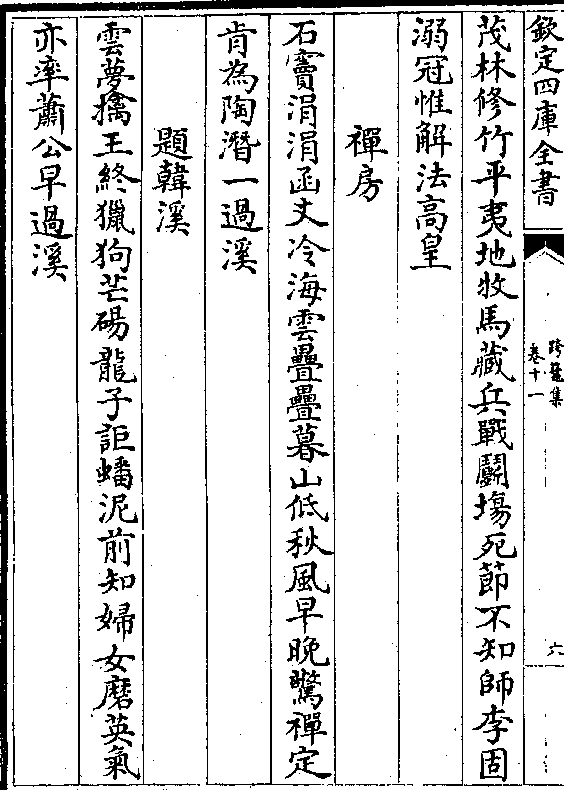 欽定四庫全書
跨鼇集
卷十一
六
茂林修竹平夷地牧馬藏兵戰鬭塲死節不知師李固
溺冠惟解法高皇
禪房
石竇涓涓函丈冷海雲疊疊暮山低秋風早晚驚禪定
肯為陶潛一過溪
題韓溪
雲夢擒王終獵狗芒碭龍子詎蟠泥前知婦女磨英氣
亦率蕭公早過溪